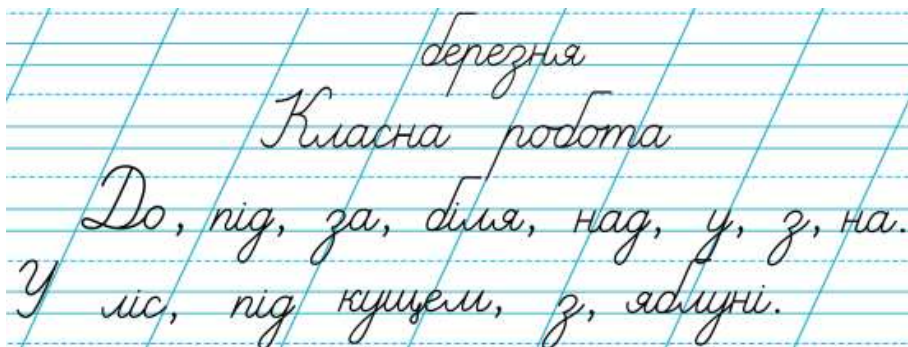 березня
Класна робота
До, під, за, біля, над, у, з, на.
У ліс, під кущем, з, яблуні.